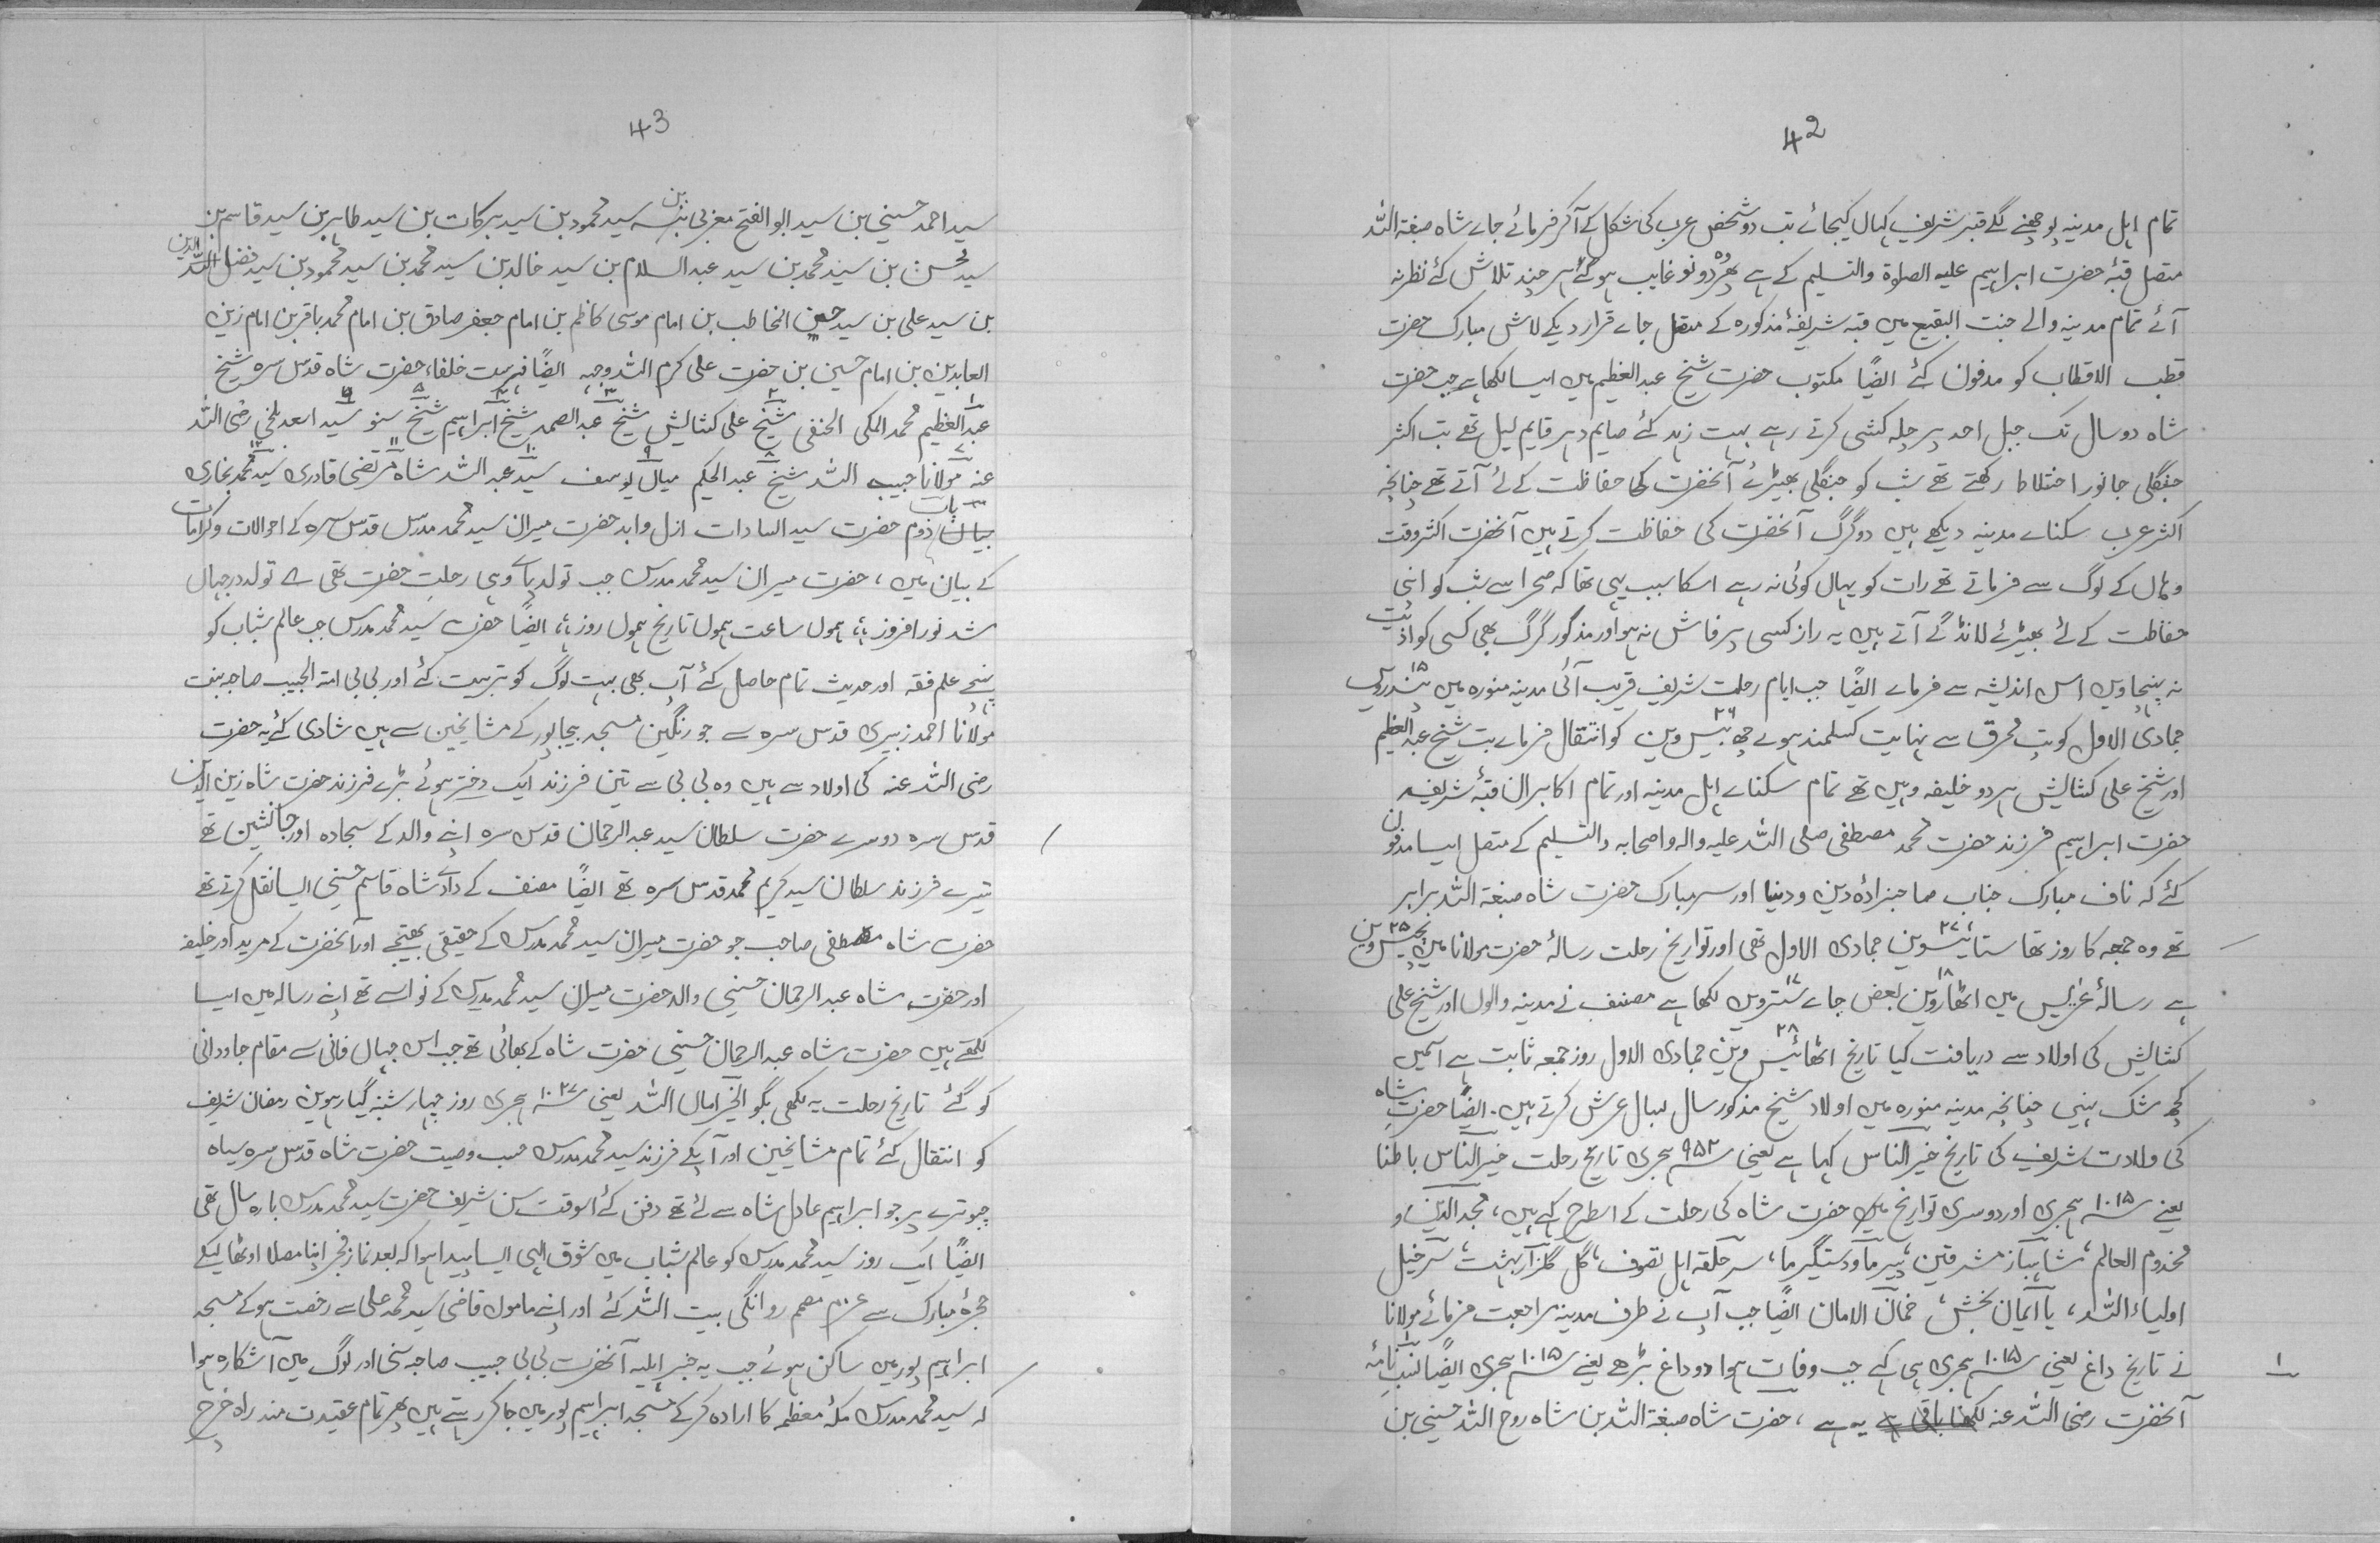 42
تمام اہل مدینہ پوچھنے لگے قبر شریف کہاں کیجائے تب دو شخص عرب کی شکل کے آکر فرمائے جاے شاہ صبغۃ اللہ
متصل قبۂ حضرت ابراہیم علیہ الصلوۃ والتسلیم کے ہے پھر وہ دونو غایب ہوگئے ہر چند تلاش کئے نظر نہ
آئے تمام مدینہ والے جنت البقیع میں قبہ شریفۂ مذکورہ کے متصل جاے قرار دیکے لاش مبارک حضرت
قطب الاقطاب کو مدفون کئے ایضًا مکتوب حضرت شیخ عبد العظیم میں ایسا لکھا ہے جب حضرت
شاہ دو سال تک جبل احد پر چلہ کشی کرتے رہے بہت زہد کئے صایم دہر قایم لیل تھے تب اکثر
جنگلی جانور اختلاط رکھتے تھے شب کو جنگلی بھیڑئے آنحضرت کی حفاظت کے لئے آتے تھے چنانچہ
اکثر عرب سکناے مدینہ دیکھے ہیں دو گرگ آنحضرت کی حفاظت کرتے ہیں آنحضرت اکثر وقت
وہاں کے لوگ سے فرماتے تھے رات کو یہاں کوئی نہ رہے اسکا سبب یہی تھا کہ صحرا سے شب کو اپنی
حفاظت کے لئے بھیڑئے لانڈگے آتے ہیں یہ راز کسی پر فاش نہ ہو اور مذکور گرگ بھی کسی کو اذیت
نہ پہنچاویں اس اندیشہ سے فرماے ایضًا جب ایام رحلت شریف قریب آئی مدینہ منورہ میں ۱۵ پندرویں
جمادی الاول کو تپ محرق سے نہایت کسلمند ہوے ۲۶ چھ بیس ویں کو انتقال فرماے تب شیخ عبد العظیم
اور شیخ علی کشالیش ہر دو خلیفہ وہیں تھے تمام سکناے اہل مدینہ اور تمام اکابران قبۂ شریف
حضرت ابراہیم فرزند حضرت محمد مصطفی صلی اللہ علیہ والہ واصحابہ والتسلیم کے متصل ایسا مدفون
کئے کہ ناف مبارک جناب صاحبزادہ دین ودنیا اور سر مبارک حضرت شاہ صبغۃ اللہ برابر
تھے وہ جمعہ کا روز تھا ۲۷ ستائیسویں جمادی الاول تھی اور تواریخ رحلت رسالۂ حضرت مولانا میں ۲۵ پچیس ویں
ہے رسالۂ عزیس میں ۱۸ اٹھارویں بعض جاے ۱۷ سترویں لکھا ہے مصنف نے مدینہ والوں اور شیخ علی
کشالیش کی اولاد سے دریافت کیا تاریخ ۲۸ اٹھائیس ویں جمادی الاول روز جمعہ ثابت ہے اسمیں
کچھ شک نہیں چنانچہ مدینہ منورہ میں اولاد شیخ مذکور سال بسال عرش کرتے ہیں۔ ایضًا حضرت شاہ
کی ولادت شریف کی تاریخ خیر الناس کہا ہے یعنی ۹۵۲ ہجری تاریخ رحلت خیر الناس باطنا
یعنے ۱۰۱۵ ہجری اور دوسری تواریخ میں حضرت شاہ کی رحلت کے اسطرح کہے ہیں، مجد الدین، و
مخدوم العالم، شاہباز مشرقین، پیرما ودستگیرما، سر حلقہ اہل تصوف، گل گلزار بہشت، سر خیل
اولیاء اللہ، یا ایمان بخش، خمان الامان ایضًا جب آپ نے طرف مدینہ مراجعت فرمائے مولانا
نے تاریخ داغ یعنی ۱۰۱۵ ہجری ہی کہے جب وفات ہوا دو داغ بڑھے یعنے ۱۰۱۵ ہجری ایضًا نسب نامۂ
آنحضرت رضی اللہ عنہ یہ ہے، حضرت شاہ صبغۃ اللہ بن شاہ روح اللہ حسینی بن
43
سید احمد حسینی بن سید ابو الفتح مغربی بن سید محمود بن سید برکات بن سید طاہر بن سید قاسم بن
سید محسن بن سید محمد بن سید عبد السلام بن سید خالد بن سید محمد بن سید محمود بن سید فضل الدین
بن سید علی بن سید حسین المخاطب بن امام موسی کاظم بن امام جعفر صادق بن امام محمد باقر بن امام زین
العابدین بن امام حسین بن حضرت علی کرم اللہ وجہہ ایضًا فہرست خلفاء حضرت شاہ قدس سرہ شیخ
عبد العظیم محمد المکی الحنفی شیخ علی کشالیش شیخ عبد الصمد شیخ ابراہیم شیخ سنو سید اسعد بلخی رضی اللہ
عنہ مولانا حبیب اللہ شیخ عبد الحکیم میاں یوسف سید عبد اللہ شاہ مرتضی قادری سید محمد بخاری
باب دوم حضرت سید السادات ازل وابد حضرت میران سید محمد مدرس قدس سرہ کے احوالات وکرامات
کے بیان میں، حضرت میران سید محمد مدرس جب تولد پاے وہی رحلت حضرت تقی ے تولد در جہاں
شد نور افروز؛؛ ہموں ساعت ہموں تاریخ ہموں روز؛؛ ایضًا حضرت سید محمد مدرس جب عالم شباب کو
پہنچے علم فقہ اور حدیث تمام حاصل کئے آپ بھی بہت لوگ کو تربیت کئے اور بی بی امۃ الحبیب صاحبہ بنت
مولانا احمد زبیری قدس سرہ سے جو رنگین مسجد بیجاپور کے مشایخین سے ہیں شادی کئے یہ حضرت
رضی اللہ عنہ کی اولاد سے ہیں وہ بی بی سے تین فرزند ایک دختر ہوئے بڑے فرزند حضرت شاہ زین الدین
قدس سرہ دوسرے حضرت سلطان سید عبد الرحمان قدس سرہ اپنے والد کے سجادہ اور جانشین تھے
تیسرے فرزند سلطان سید کریم محمد قدس سرہ تھے ایضًا مصنف کے دادے شاہ قاسم حسینی ایسا نقل کرتے تھے
حضرت شاہ مصطفی صاحب جو حضرت میران سید محمد مدرس کے حقیقی بھتیجے اور آنحضرت کے مرید اور خلیفہ
اور حضرت شاہ عبد الرحمان حسینی والد حضرت میران سید محمد مدرس کے نواسے تھے اپنے رسالہ میں ایسا
لکھتے ہیں حضرت شاہ عبد الرحمان حسینی حضرت شاہ کے بھائی تھے جب اس جہاں فانی سے مقام جاودانی
کو گئے تاریخ رحلت یہ لکھی بگو الخیر امان اللہ یعنی ۱۰۲۷ ہجری روز چہار شنبہ گیارہویں رمضان شریف
کو انتقال کئے تمام مشایخین اور آپکے فرزند سید محمد مدرس حسب وصیت حضرت شاہ قدس سرہ سیاہ
چبوترے پر جو ابراہیم عادل شاہ سے لئے تھے دفن کئے اسوقت سن شریف حضرت سید محمد مدرس بارہ سال تھی
ایضًا ایک روز سید محمد مدرس کو عالم شباب میں شوق الہی ایسا پیدا ہوا کہ بعد نماز فجر اپنا مصلا اوٹھا لیکے
حجرۂ مبارک سے عزم مصمم روانگی بیت اللہ کئے اور اپنے ماموں قاضی سید محمد علی سے رخصت ہوکے مسجد
ابراہیم پور میں ساکن ہوئے جب یہ خبر اہلیہ آنحضرت بی بی حبیب صاحبہ سنی اور لوگ میں آشکارہ ہوا
کہ سید محمد مدرس مکۂ معظمہ کا ارادہ کرکے مسجد ابراہیم پور میں جاکر رہتے ہیں پھر تمام عقیدت مند راہ خرچ